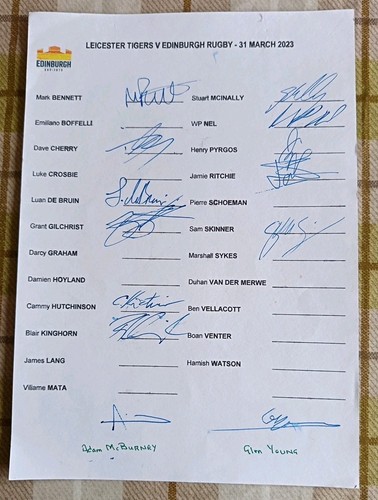 EDINBURGH
LEICESTER TIGERS V EDINBURGH RUGBY - 31 MARCH 2023
Mark BENNETT
Stuart MCINALLY
Emiliano BOFFELLI
WP NEL
Dave CHERRY
Henry PYRGOS
Luke CROSBIE
Jamie RITCHIE
Luan DE BRUIN
Pierre SCHOEMAN
Grant GILCHRIST
Sam SKINNER
Darcy GRAHAM
Marshall SYKES
Damien HOYLAND
Duhan VAN DER MERWE
Cammy HUTCHINSON
Ben VELLACOTT
Blair KINGHORN
Boan VENTER
James LANG
Hamish WATSON
Viliame MATA
Adam McBURNEY
Glen YOUNG